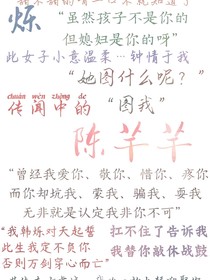 炼
“虽然孩子不是你的
但媳妇是你的呀”
此女子小意温柔…钟情于我
“她图什么呢？”
chuán wén zhōng de
传闻中的
“图我”
陈芊芊
“曾经我爱你、敬你、惜你、疼你
而你却坑我、蒙我、骗我、耍我
无非就是认定我非你不可”
“我韩烁对天起誓
此生我定不负你
否则万剑穿心而亡”
扛不住了告诉我
我替你敲休战鼓